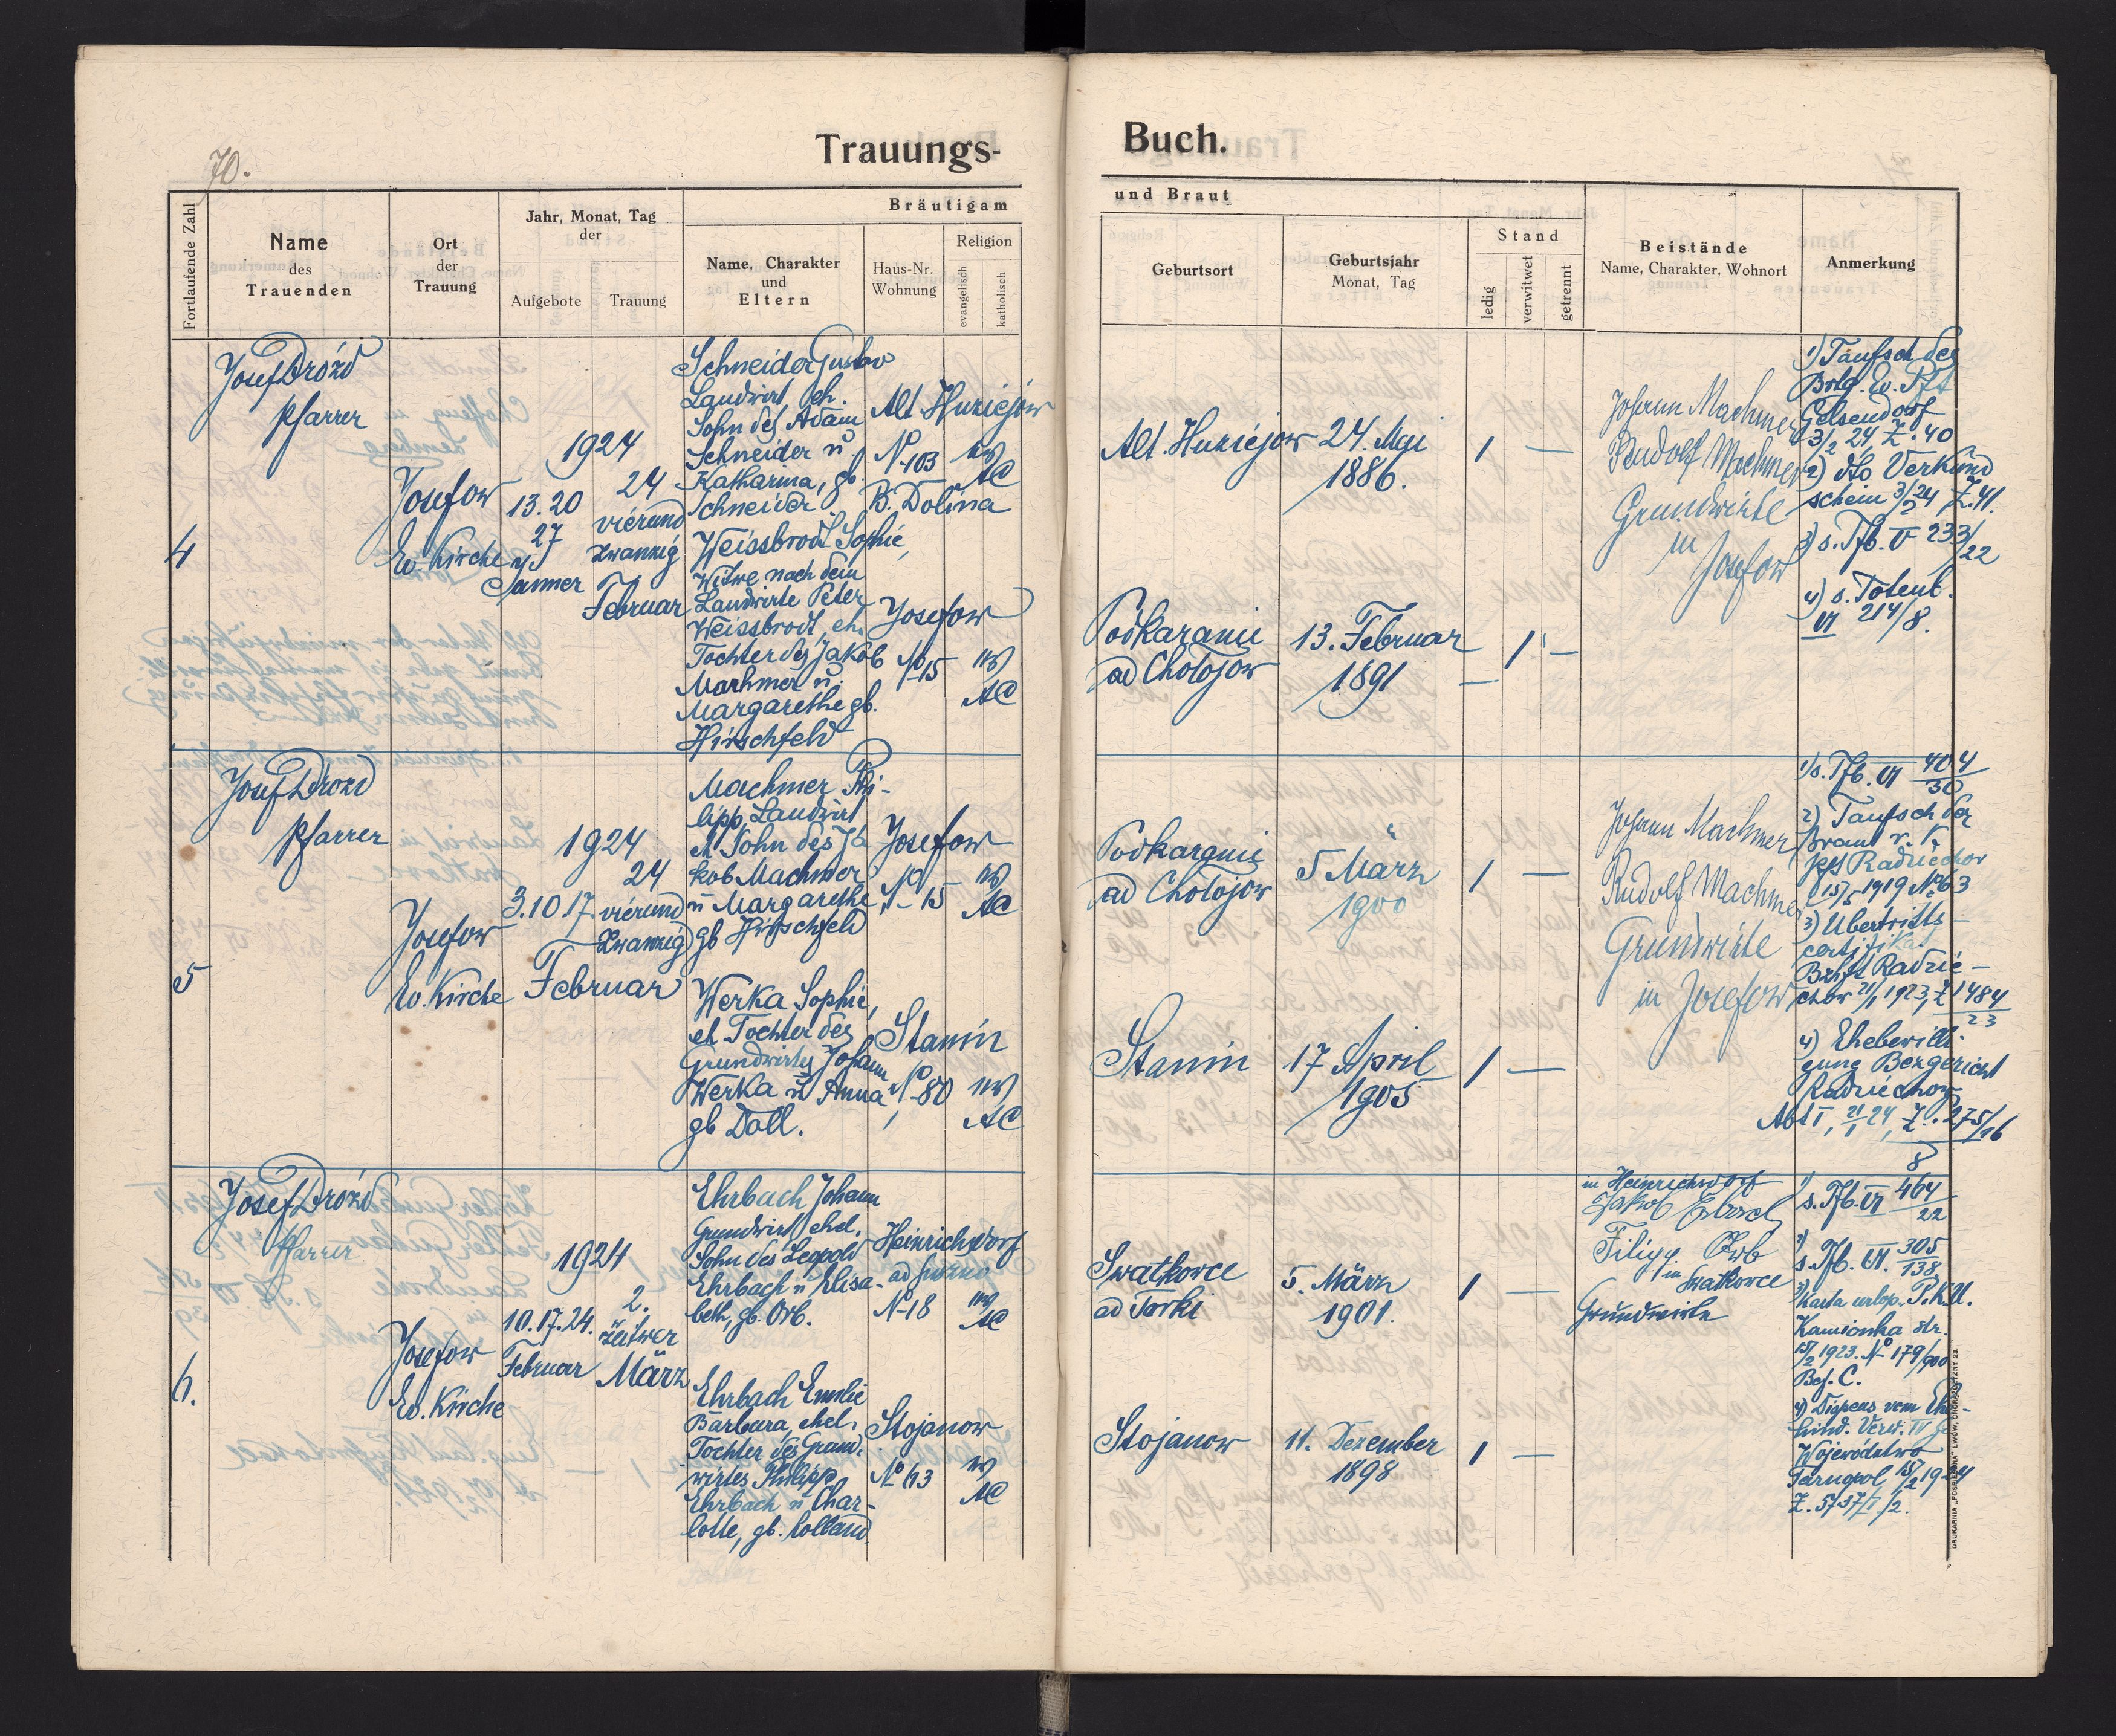 70.
Trauungs-
Buch.
Fortlaufende Zahl
Name
des
Trauenden
Ort
der
Trauung
Jahr, Monat, Tag
der
Aufgebote
Trauung
Bräutigam
Name, Charakter
und
Eltern
Haus-Nr.
Wohnung
Religion
evangelisch
katholisch
und Braut
Geburtsort
Geburtsjahr
Monat, Tag
Stand
ledig
verwitwet
getrennt
Beistände
Name, Charakter, Wohnort
Anmerkung
4
Josef Drozd
Pfarrer
Josefow
Ev. Kirche
1924
13. 20
27
Jänner
24
vierund
zwanzig
Februar
Schneider Gustav
Landwirt eh.
Sohn des Adam
Schneider u
Katharina, gb.
Schneider.
Alt Huziejow
No 103
B. Dolina
AC
Weissbrodt Sophie,
Witwe nach dem
Landwirte Peter
Weissbrodt, eh.
Tochter des Jakob
Machmer u.
Margarethe gb.
Hirschfeld
Josefow
No 15
AC
Alt. Huziejow
24. Mai
1886.
1 —
Podkaranie
ad Cholojow
13. Februar
1891
— 1 —
Johann Machmer
Rudolf Machmer
Grundwirte
in
Josefow
1) Taufsch des
Brtg. Ev. Pft
Gelsendorf
3/2 24, Z. 40
2) dto Verkünd
schein 3/2 24, Z. 41.
3) s. Tfb. V 233/22
4) s. Totenb.
VI 214/8.
5
Josef Drozd
Pfarrer
Josefow
Ev. Kirche
1924
3. 10 17.
24
vierund
zwanzig
Februar
Machmer Phi-
lipp, Landwirt
eh Sohn des Ja
kob Machmer
u Margarethe
gb Hirschfeld
Josefow
No 15
AC
Werka Sophie,
eh Tochter des
Grundwirtes Johann
Werka u Anna
gb Doll.
Stanin
No 80
AC
Podkaranie
ad Cholojow
5 März
1900
1 —
Stanin
17 April
1905
1 —
Johann Machmer
Rudolf Machmer
Grundwirte
in Josefow
1) s. Tfb. VI 404/30
2) Taufsch der
Braut r. k.
Pft Radziechow
15/5 1919 No 63
3) Übertritts-
certifikat
Bzhft Radzie-
chow 21/1 1923, Z 1484/23
4) Ehebewilli-
gung Bezgericht
Radziechow
Abt I, 21/1 24, Z. 275/26
8
6.
Josef Drozd
Pfarrer
Josefow
Ev. Kirche
1924
10. 17. 24.
Februar
2.
zwei
März
Ehrbach Johann
Grundwirt ehel.
Sohn des Leopold
Ehrbach u Elisa-
beth, gb. Orb.
Heinrichsdorf
No 18
AC
Ehrbach Emilie
Barbara, ehel.
Tochter des Grund-
wirtes Philipp
Ehrbach u Char-
lotte, gb. Kolland.
Stojanow
No 63
AC
Swatkowce
ad Torki
5. März
1901.
1 —
Stojanow
11. Dezember
1898
1 —
in Heinrichsdorf
Jakob
Filipp Orb
in Swatkowce
Grundwirte
1) s. Tfb. VI 464/22
2) s. Tfb. VI. 305/138
3) Karta urlop. P.K.U.
Kamionka str.
15/2 1923. No 179/900
Bef. C.
4) Dispens vom Ehe-
hind. Verw.
Wojewodztwo
Tarnopol, 15/2 1924
Z. 5737/I/2.
DRUKARNIA